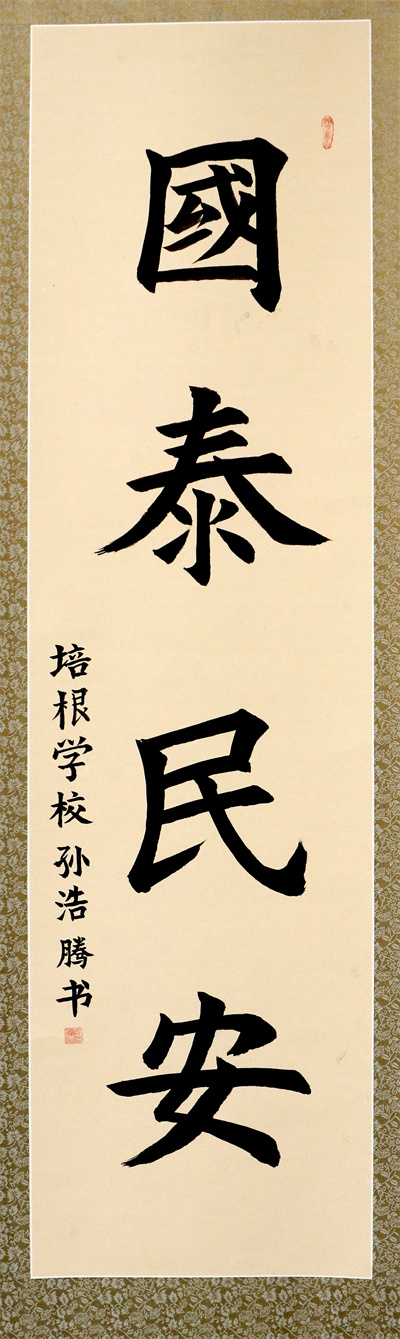 國泰民安
培根学校孙浩腾书